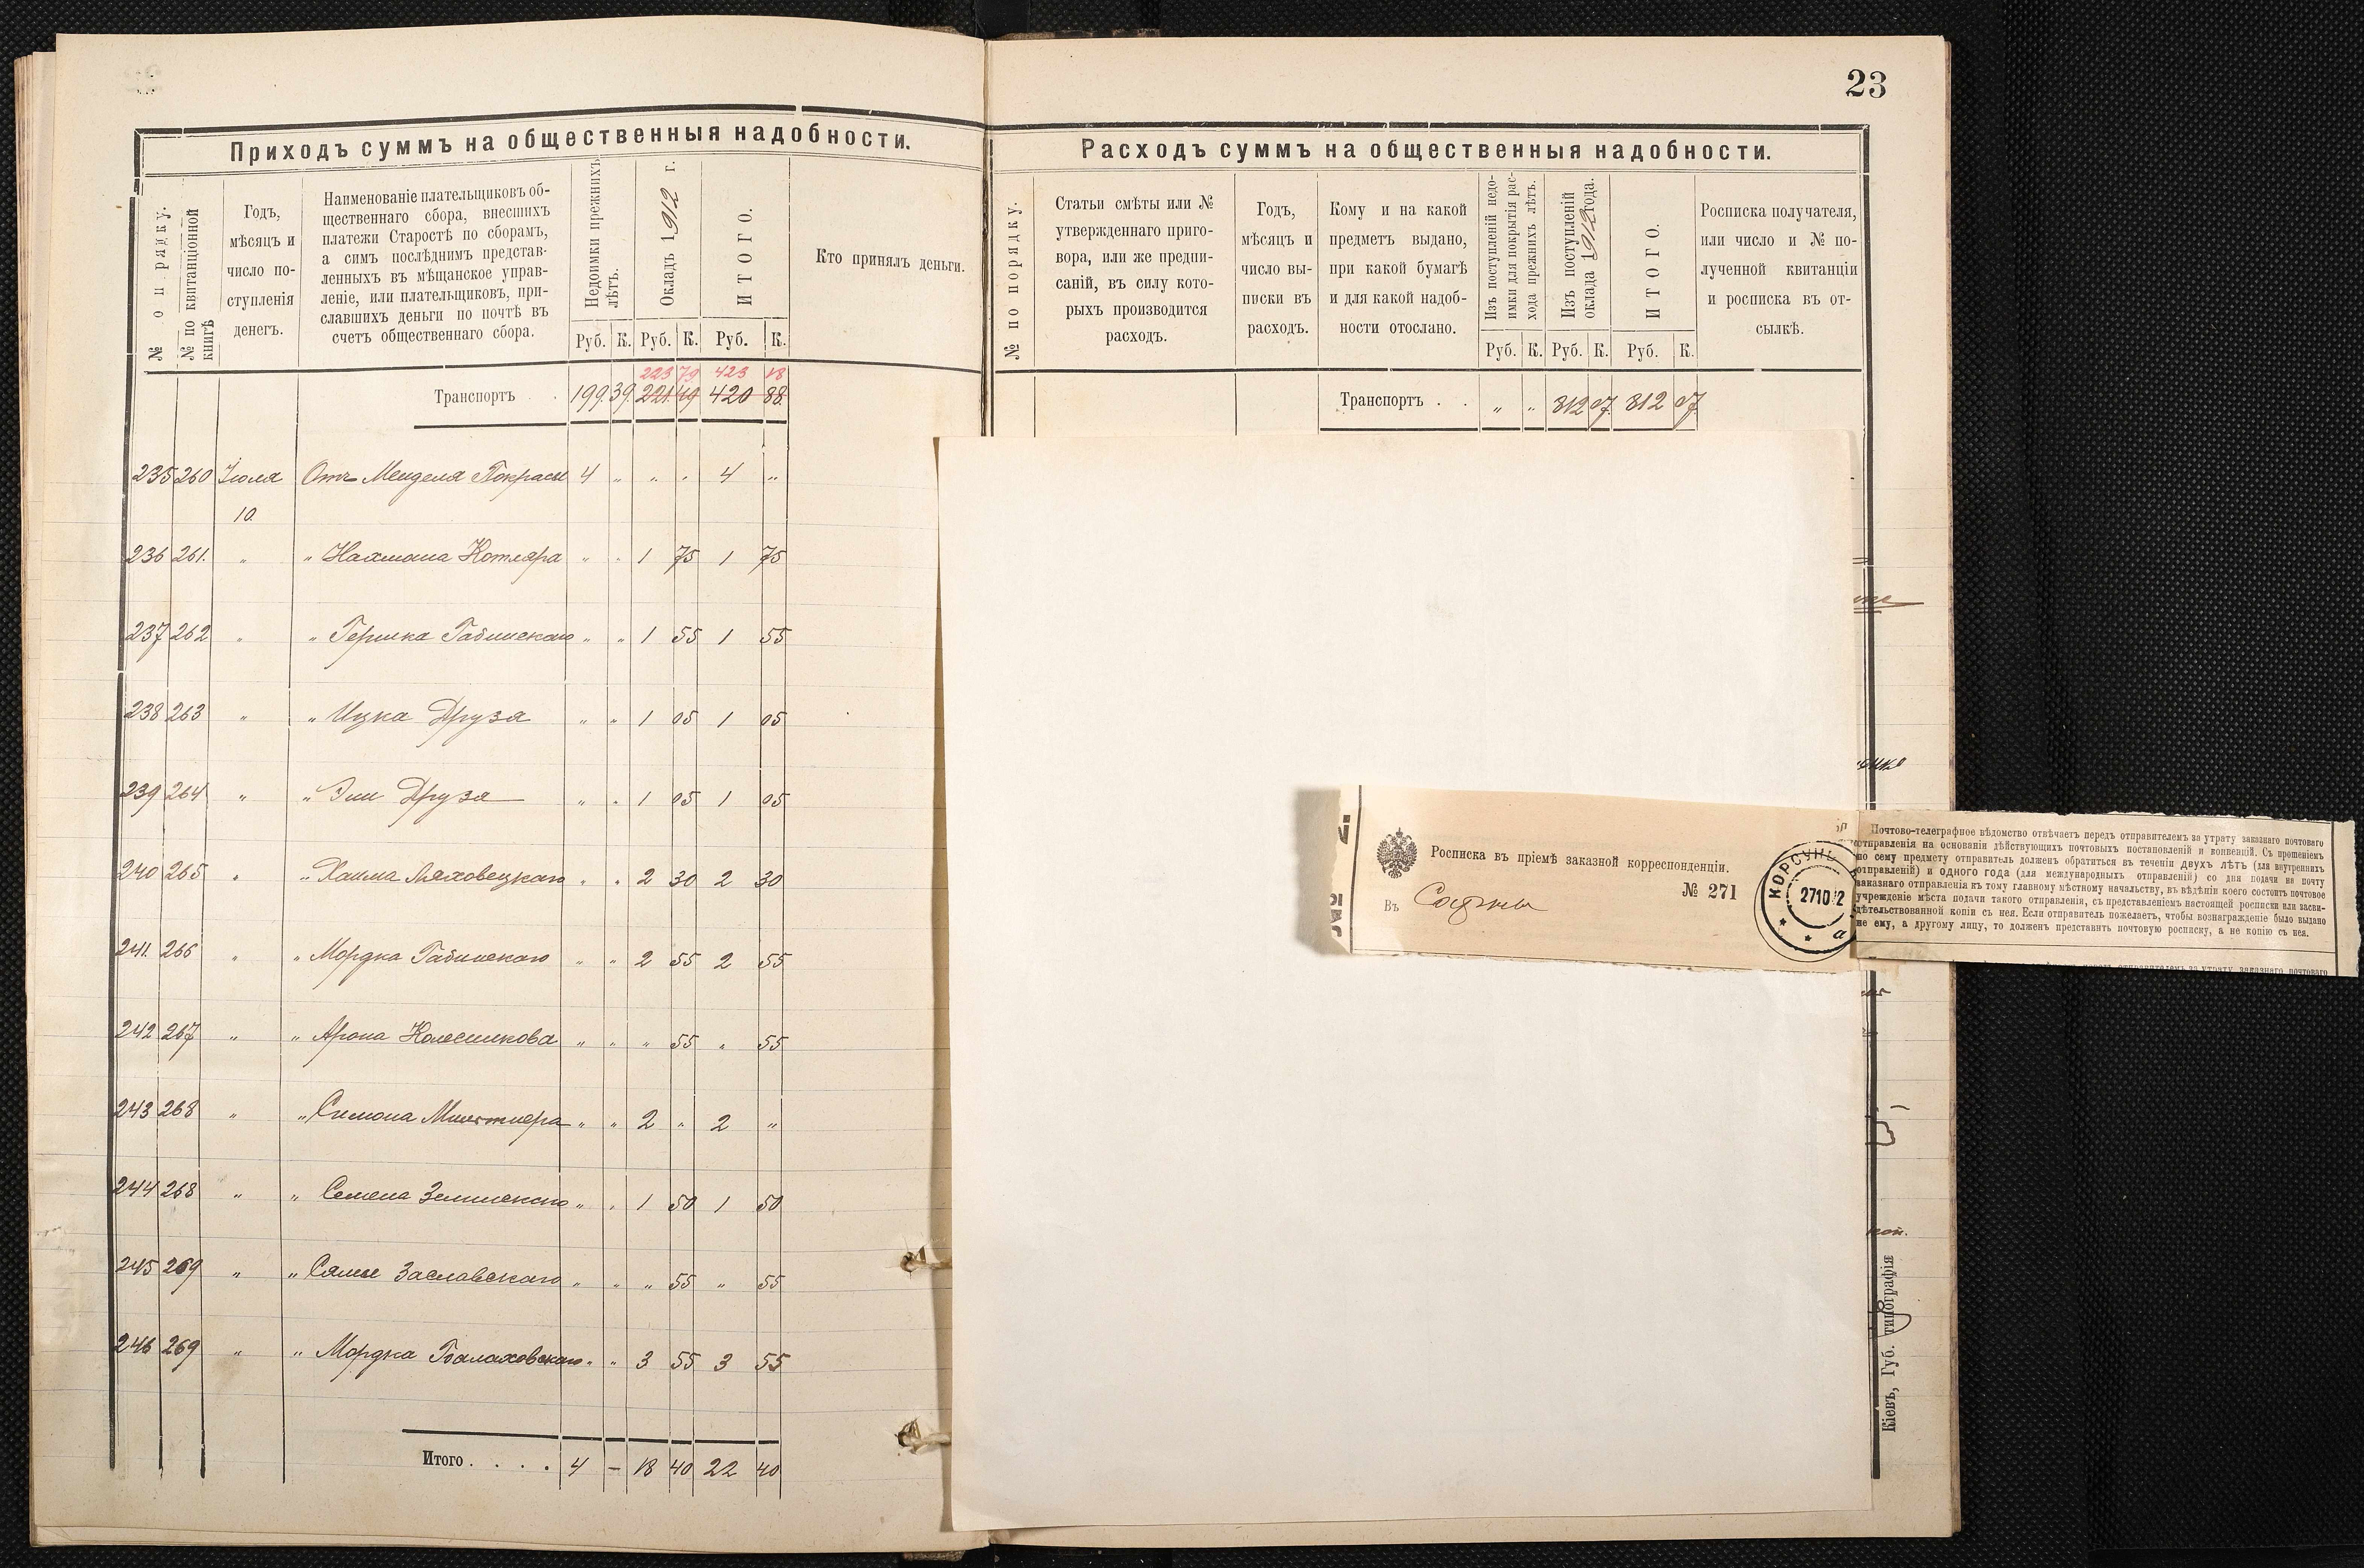 23
Приходъ суммъ на общественныя надобности.
№ по порядку.
№ по квитанціонной книгѣ
Годъ,
мѣсяцъ и
число по-
ступленія
денегъ.
Наименованіе плательщиковъ об-
щественнаго сбора, внесшихъ
платежи Старостѣ по сборамъ,
а симъ послѣднимъ представ-
ленныхъ въ мѣщанское управ-
леніе, или плательщиковъ, при-
славшихъ деньги по почтѣ въ
счетъ общественнаго сбора.
Недоимки прежнихъ
лѣтъ.
Окладъ 1912 г.
ИТОГО.
Кто принялъ деньги.
Руб. К. Руб. К. Руб. К.
223 79 423 18
Транспортъ . 199. 39. 221. 49 420 88.
235 260 Іюля Отъ Менделя Покрасы 4 „ „ „ 4 „
10.
236 261. „ „ Нахмана Котляра „ „ 1 75 1 75
237 262 „ „ Гершка Габинскаго „ „ 1 55 1 55
238 263 „ „ Ицка Друзя „ „ 1 05 1 05
239 264 „ „ Эли Друзя „ „ 1 05 1 05
240 265 „ „ Хаима Ляховецкаго „ „ 2 30 2 30
241. 266 „ „ Мордка Габинскаго „ „ 2 55 2 55
242 267 „ „ Арона Колесникова „ „ „ 55 „ 55
243 268 „ „ Симона „ „ 2 „ 2 „
244 268 „ „ Семена „ „ 1 50 1 50
245 269 „ „ Заславскаго „ „ „ 55 „ 55
246 269 „ „ Мордка Балаховскаго „ „ 3 55 3 55
Итого . . . . 4 – 18 40 22 40
Расходъ суммъ на общественныя надобности.
№ по порядку.
Статьи смѣты или №
утвержденнаго приго-
вора, или же предпи-
саній, въ силу кото-
рыхъ производится
расходъ.
Годъ,
мѣсяцъ и
число вы-
писки въ
расходъ.
Кому и на какой
предметъ выдано,
при какой бумагѣ
и для какой надоб-
ности отослано.
Изъ поступленій недо-
имки для покрытія рас-
хода прежнихъ лѣтъ.
Изъ поступленій
оклада 1912 года.
ИТОГО.
Росписка получателя,
или число и № по-
лученной квитанціи
и росписка въ от-
сылкѣ.
Руб. К. Руб. К. Руб. К.
Транспортъ . . „ „ 312 07. 312 07.
Росписка въ пріемѣ заказной корреспонденціи.
№ 271
Въ
КОРСУНЬ
271012
а
Почтово-телеграфное вѣдомство отвѣчаетъ передъ отправителемъ за утрату заказнаго почтоваго
отправленія на основаніи дѣйствующихъ почтовыхъ постановленій и конвенцій. Съ прошеніемъ
по сему предмету отправитель долженъ обратиться въ теченіи двухъ лѣтъ (для внутреннихъ
отправленій) и одного года (для международныхъ отправленій) со дня подачи на почту
заказнаго отправленія къ тому главному мѣстному начальству, въ вѣдѣніи коего состоитъ почтовое
учрежденіе мѣста подачи такого отправленія, съ представленіемъ настоящей росписки или засви-
дѣтельствованной копіи съ нея. Если отправитель пожелаетъ, чтобы вознагражденіе было выдано
не ему, а другому лицу, то долженъ представить почтовую росписку, а не копію съ нея.
отправителемъ за утрату заказнаго почтоваго
коп.
Кіевъ, Губ. типографія